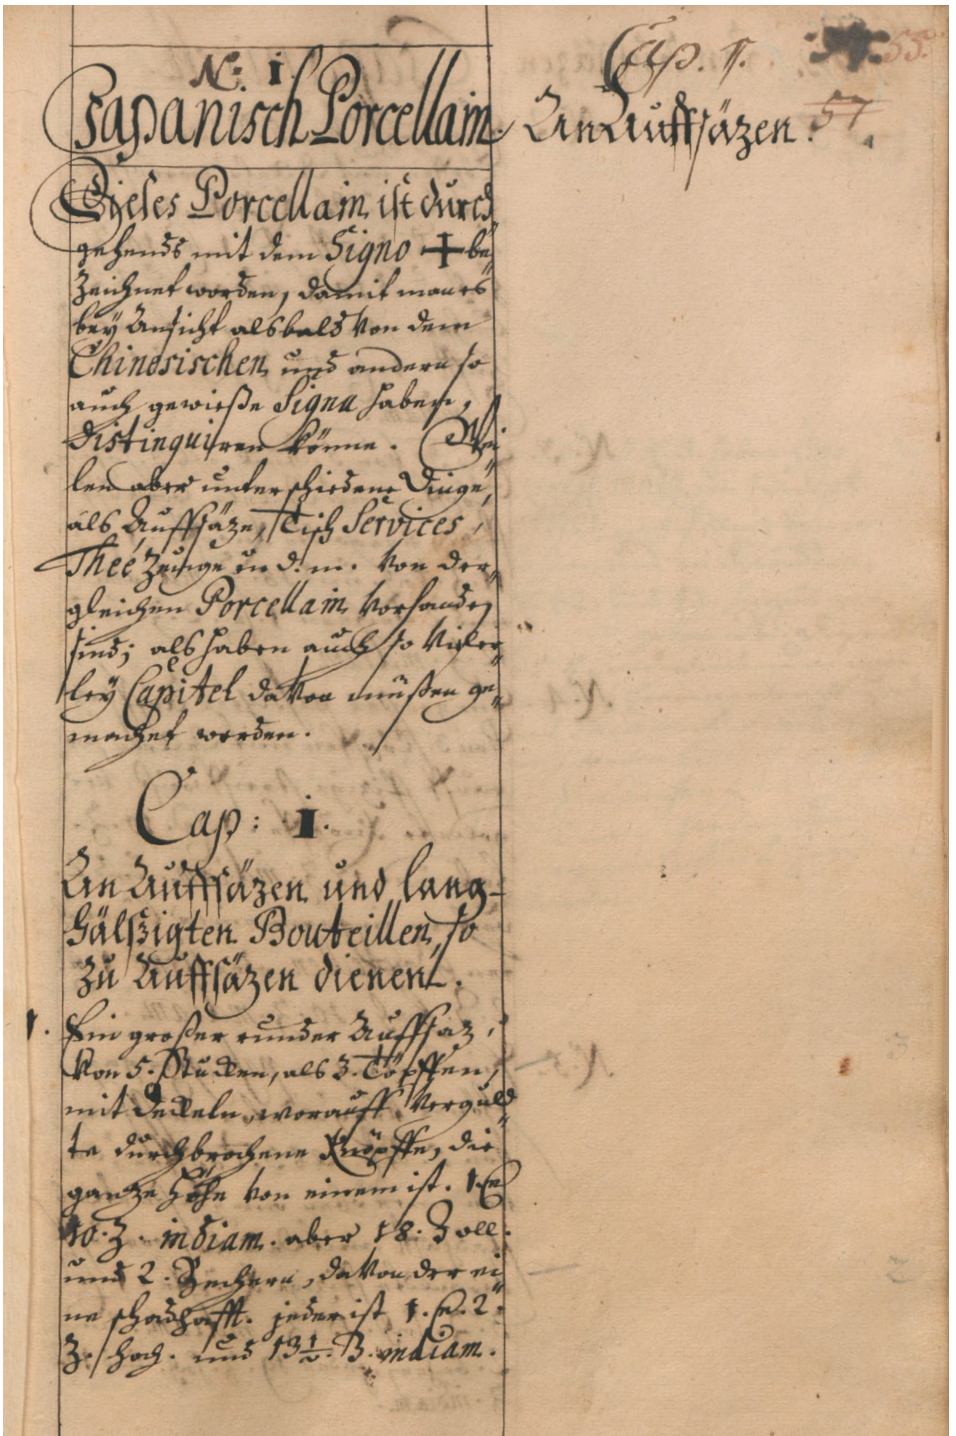 N: 1.
Japanisch Porcellain.
Dieses Porcellain ist durch
gehends mit dem Signo + be„
zeichnet worden, damit man es
bey Ansicht alsbald von dem
Chinesischen und andern so
auch gewieße Signa haben,
distinguiren könne. Wei„
len aber unterschiedene Dinge,
als Auffsäze, Tisch Services,
Theé Zeuge u. d. m. von der„
gleichen Porcellain vorhanden
sind; als haben auch so vieler„
ley Capitel davon müßen ge„
machet werden.
Cap: 1.
An Auffsäzen und lang-
hälßigten Bouteillen, so
zu Auffsäzen dienen.
1. Ein großer runder Auffsaz,
von 5. Stucken, als 3. Töpffen,
mit Deckeln, worauff verguld„
te durchbrochene Knöpffe, die
ganze Höhe von einem ist. 1. E
10. Z. in diam. aber 18. Zoll.
und 2. Bechern, davon der ei„
ne schadhafft. jeder ist 1. E. 2.
Z. hoch. und 13½. Z. in diam.
Cap. 1.
An Auffsäzen.
55.
57